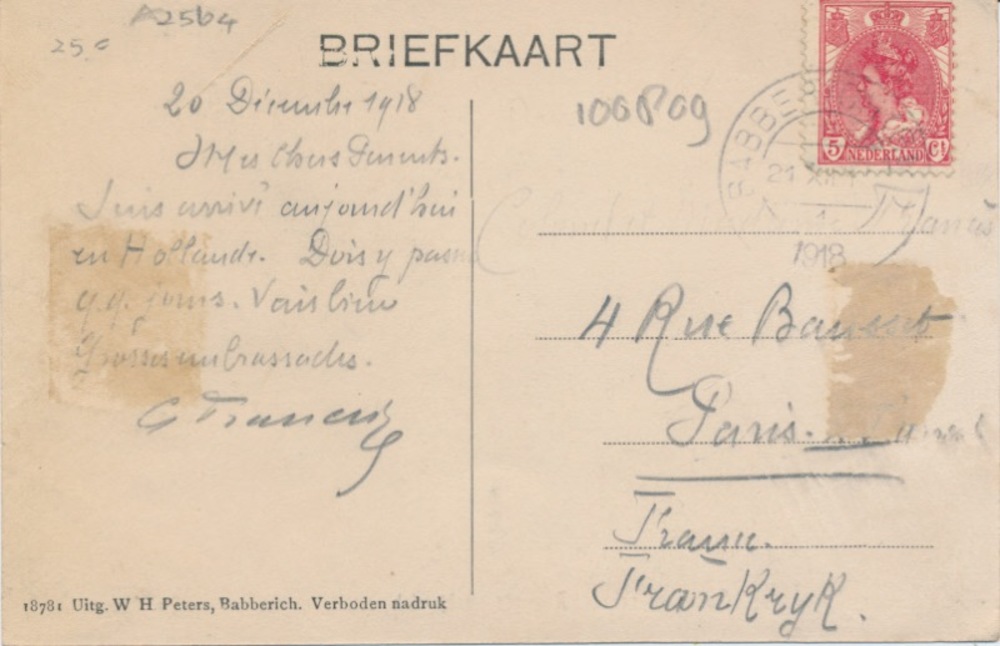 A2564
25.c
BRIEFKAART
20 Décembre 1918
Mes Chers Parents.
Suis arrivé aujourd'hui
en Hollande. Dois y passer
q.q. jours. Vais bien
Grosses embrassades.
G
100809
BABBE
21 XII
1918
5 NEDERLAND Ct
4 Rue Bausset
Paris.
France.
Frankryk.
18781 Uitg. W H Peters, Babberich. Verboden nadruk